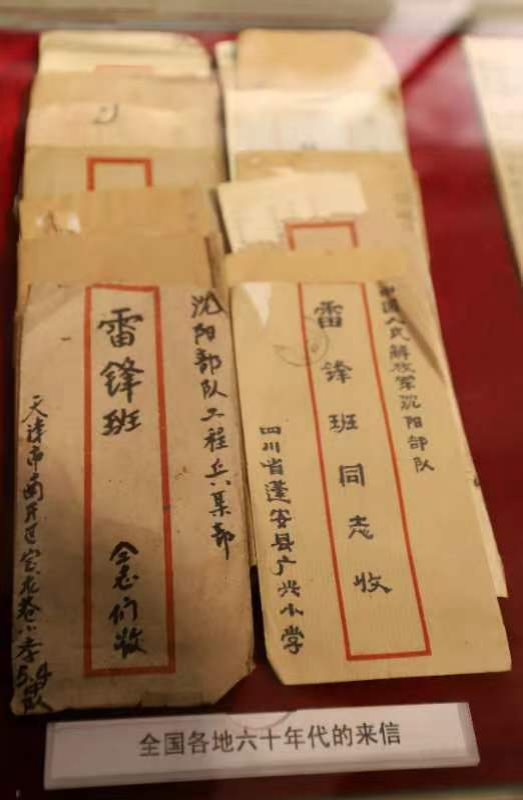 沈阳部队工程兵某部
雷锋班 仝志们收
天津市南开区宝龙巷小李5.4
中国人民解放军沈阳部队
雷锋班同志收
四川省蓬安县广兴小学
全国各地六十年代的来信